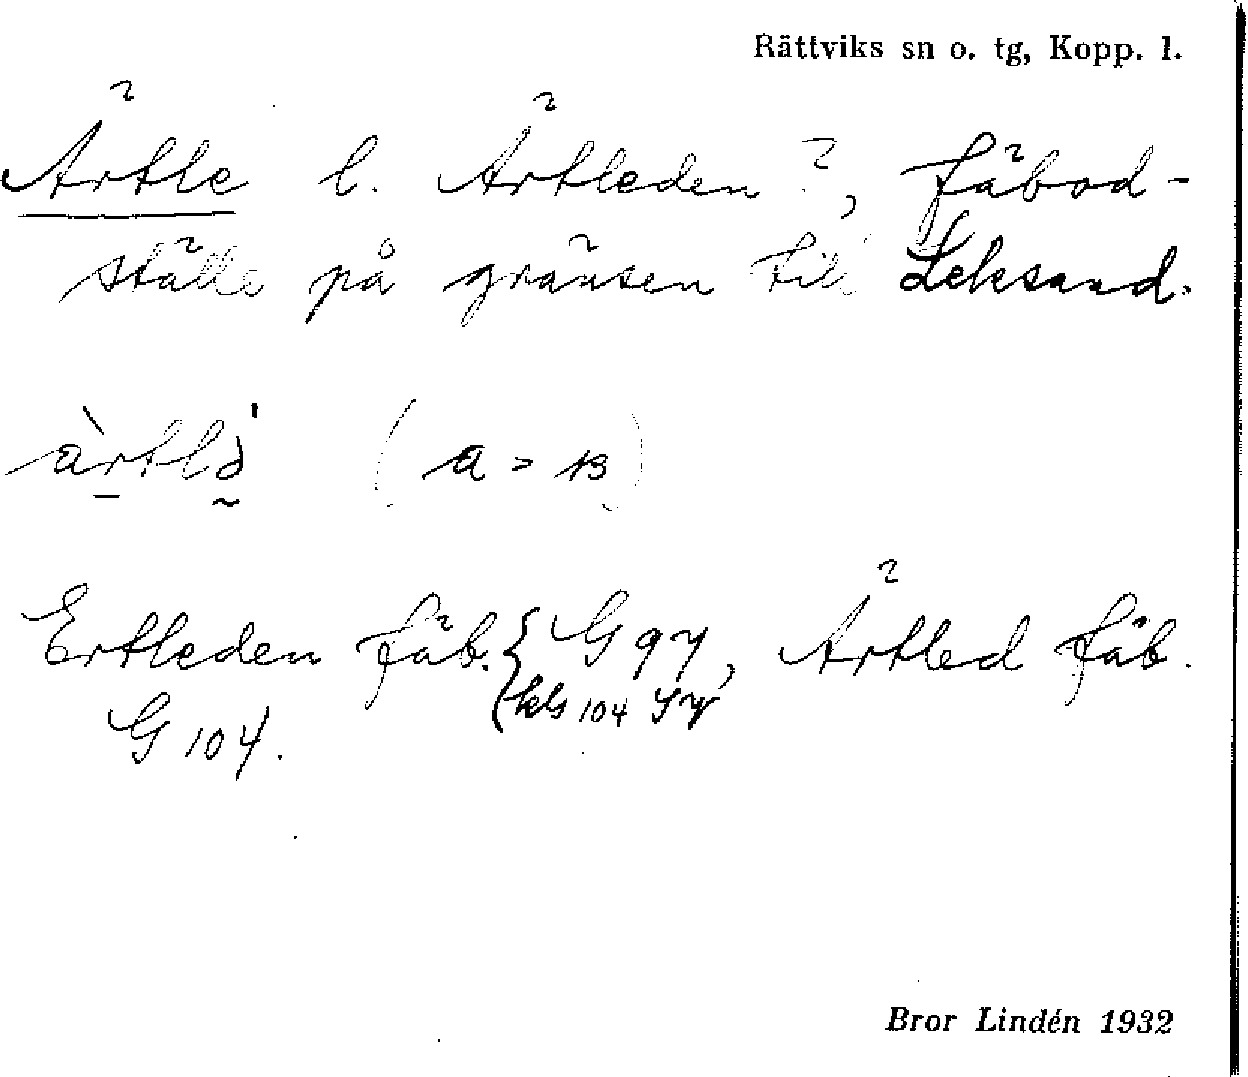 Rättviks sn o. tg, Kopp. l.
Ärtle l. Ärtleden?, fäbod-
ställe på gränsen till Leksand.
( a = B )
Ertleden fäb. { G 97, Ärtled fäb.
kls 104 SV
G 104.
Bror Lindén 1932